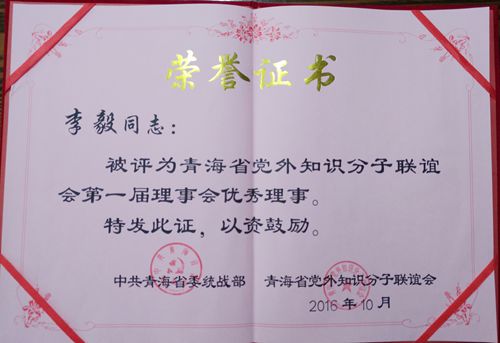 荣誉证书
李毅同志：
被评为青海省党外知识分子联谊
会第一届理事会优秀理事。
特发此证，以资鼓励。
中共青海省委统战部 青海省党外知识分子联谊会
2016 年 10 月